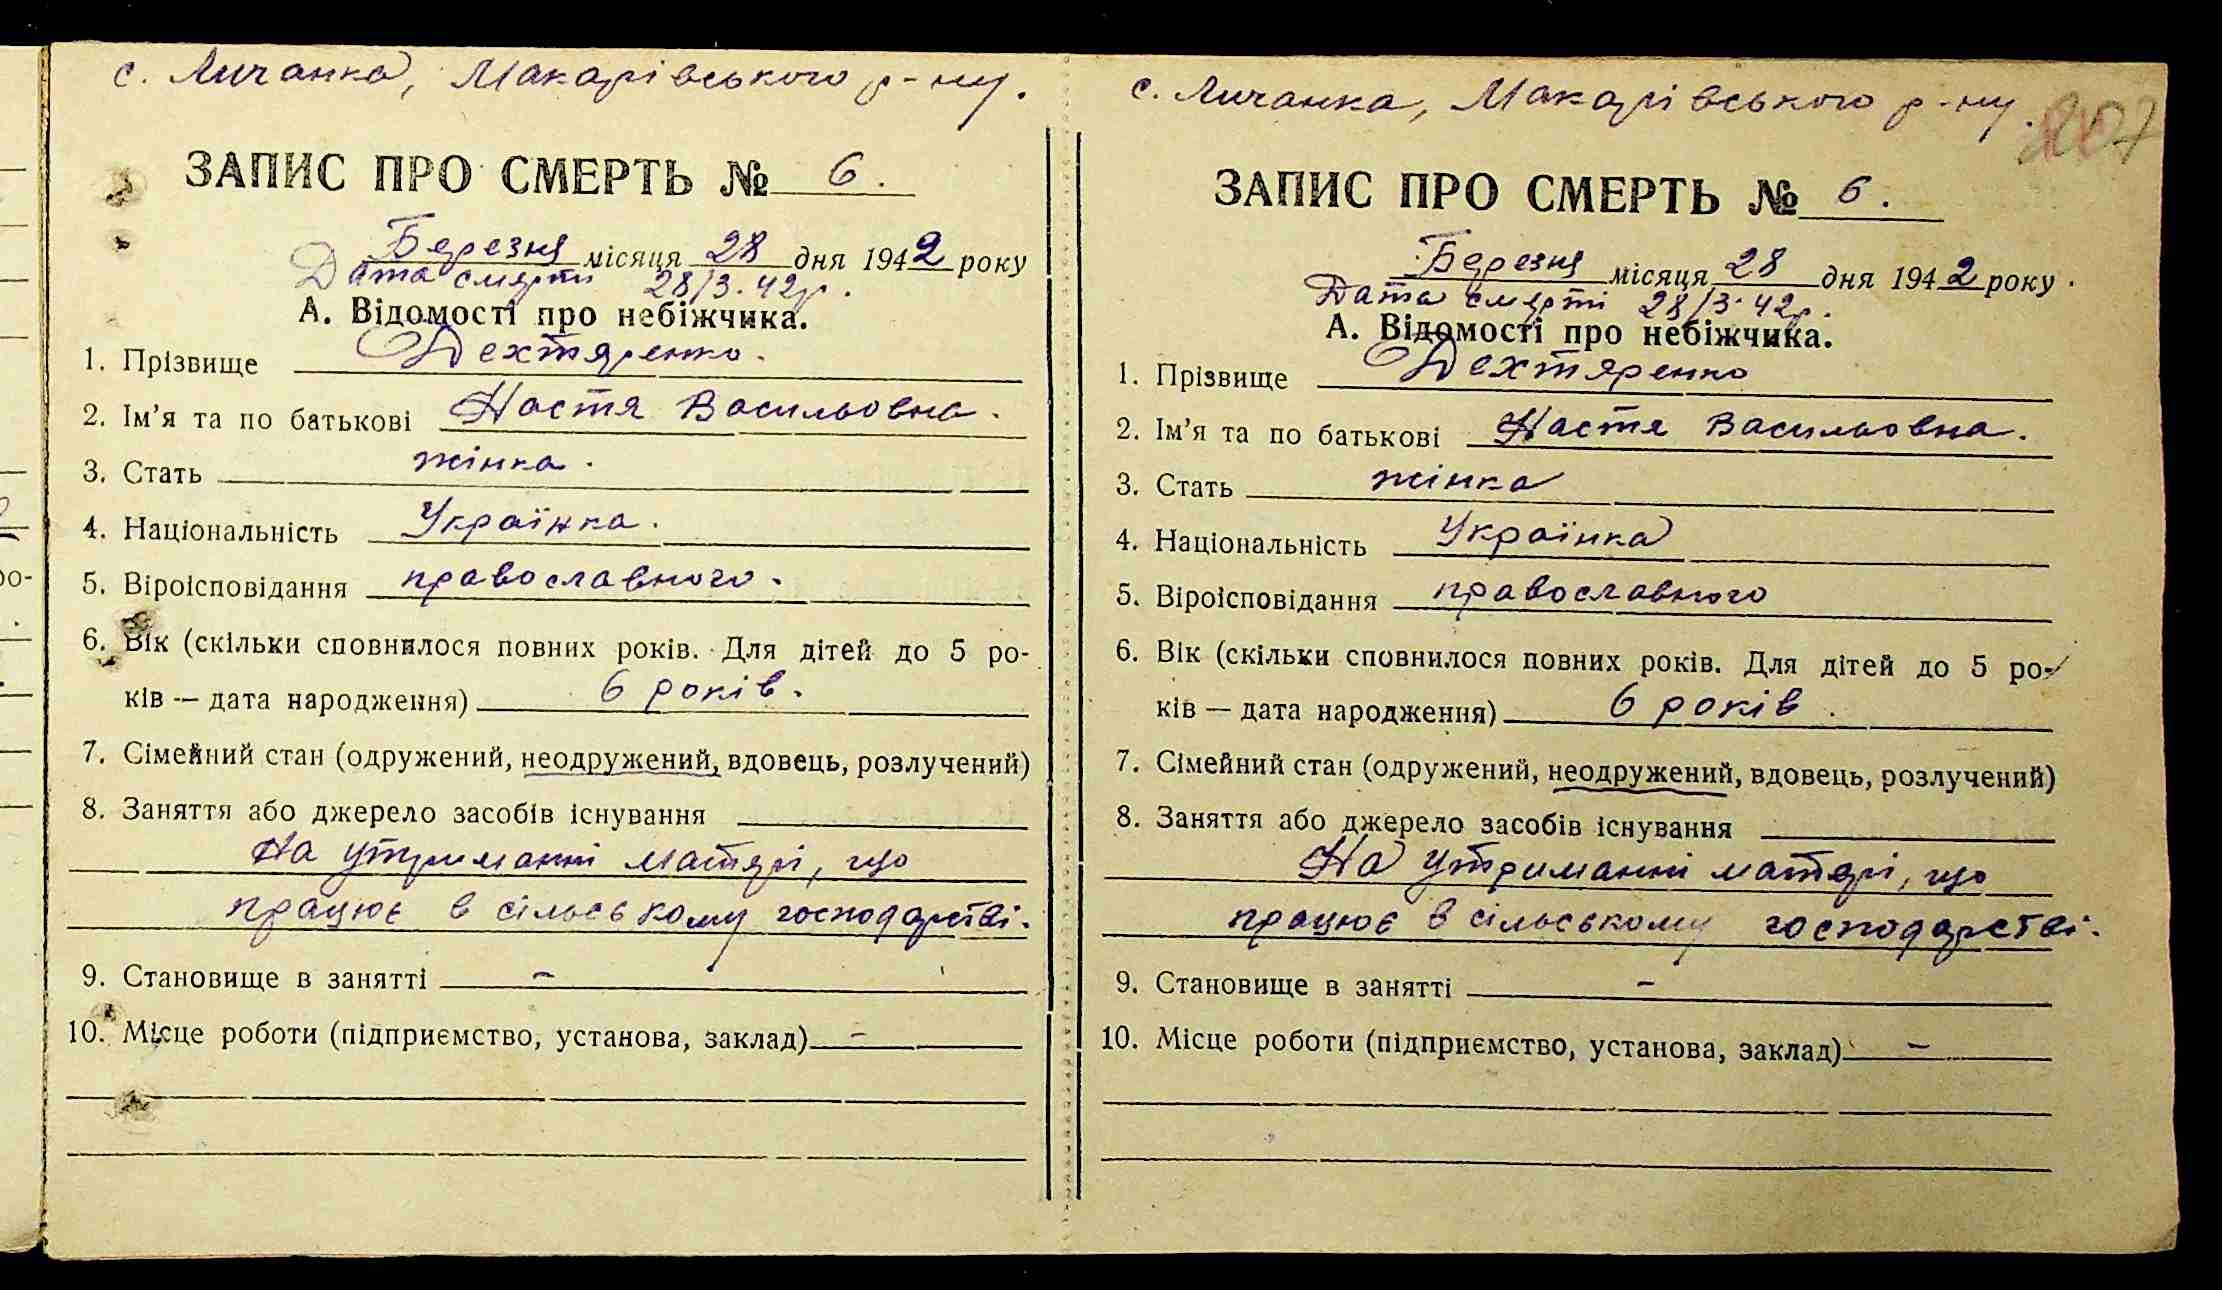 с. Личанка, Макарівського р-ну.
ЗАПИС ПРО СМЕРТЬ № 6.
Березня місяця 28 дня 1942 року
Дата смерти 28/3. 42р.
А. Відомості про небіжчика.
1. Прізвище Дехтяренко.
2. Ім'я та по батькові Настя Васильовна.
3. Стать жінка.
4. Національність Українка.
5. Віроісповідання православного.
6. Вік (скільки сповнилося повних років. Для дітей до 5 ро-
ків — дата народження) 6 років.
7. Сімейний стан (одружений, неодружений, вдовець, розлучений)
8. Заняття або джерело засобів існування
На утриманні матері, що
працює в сільському господарстві.
9. Становище в занятті -
10. Місце роботи (підприємство, установа, заклад) -
с. Личанка, Макарівського р-ну.
ЗАПИС ПРО СМЕРТЬ № 6.
Березня місяця 28 дня 1942 року.
Дата смерті 28/3. 42р.
А. Відомості про небіжчика.
1. Прізвище Дехтяренко
2. Ім'я та по батькові Настя Васильовна.
3. Стать жінка
4. Національність Українка
5. Віроісповідання православного
6. Вік (скільки сповнилося повних років. Для дітей до 5 ро-
ків — дата народження) 6 років.
7. Сімейний стан (одружений, неодружений, вдовець, розлучений)
8. Заняття або джерело засобів існування
На утриманні матері, що
працює в сільському господарстві.
9. Становище в занятті -
10. Місце роботи (підприємство, установа, заклад) -